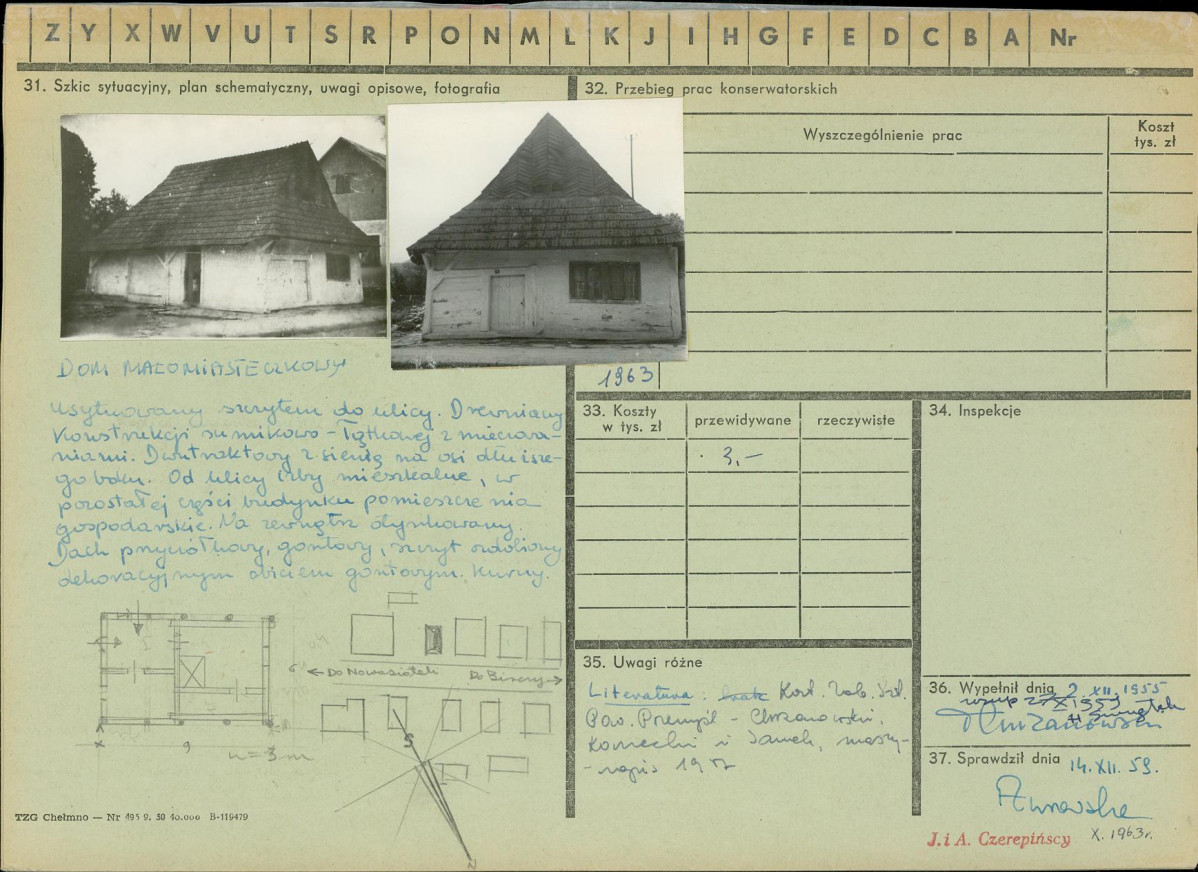 Z Y X W V U T S R P O N M L K J I H G F E D C B A Nr
31. Szkic sytuacyjny, plan schematyczny, uwagi opisowe, fotografia
DOM MAŁOMIASTECZKOWY
Usytuowany szczytem do ulicy. Drewniany
Konstrukcji sumikowo-łątkowej z mieczowa-
niami. Dwutraktowy z sienią na osi dłuższe-
go boku. Od ulicy izby mieszkalne, w
pozostałej części budynku pomieszczenia
gospodarskie. Na zewnątrz otynkowany.
Dach przyczółkowy, gontowy, szczyt ozdobiony
dekoracyjnym obiciem gontowym. Kurny.
← Do Nowosiółeki Do Birczy →
S
N
9
u = 3 m
TZG Chełmno — Nr 495 9. 50 40.000 B-119479
32. Przebieg prac konserwatorskich
Wyszczególnienie prac
Koszt
tys. zł
1963
33. Koszty
w tys. zł
przewidywane
rzeczywiste
3,—
34. Inspekcje
35. Uwagi różne
Literatura: brak
Pow. Przemyśl - Chrzanowski,
Kornecki i Samek, maszy-
-nopis 19
36. Wypełnił dnia 2. XII. 1955
37. Sprawdził dnia 14. XII. 59.
J. i A. Czerepińscy X. 1963 r.